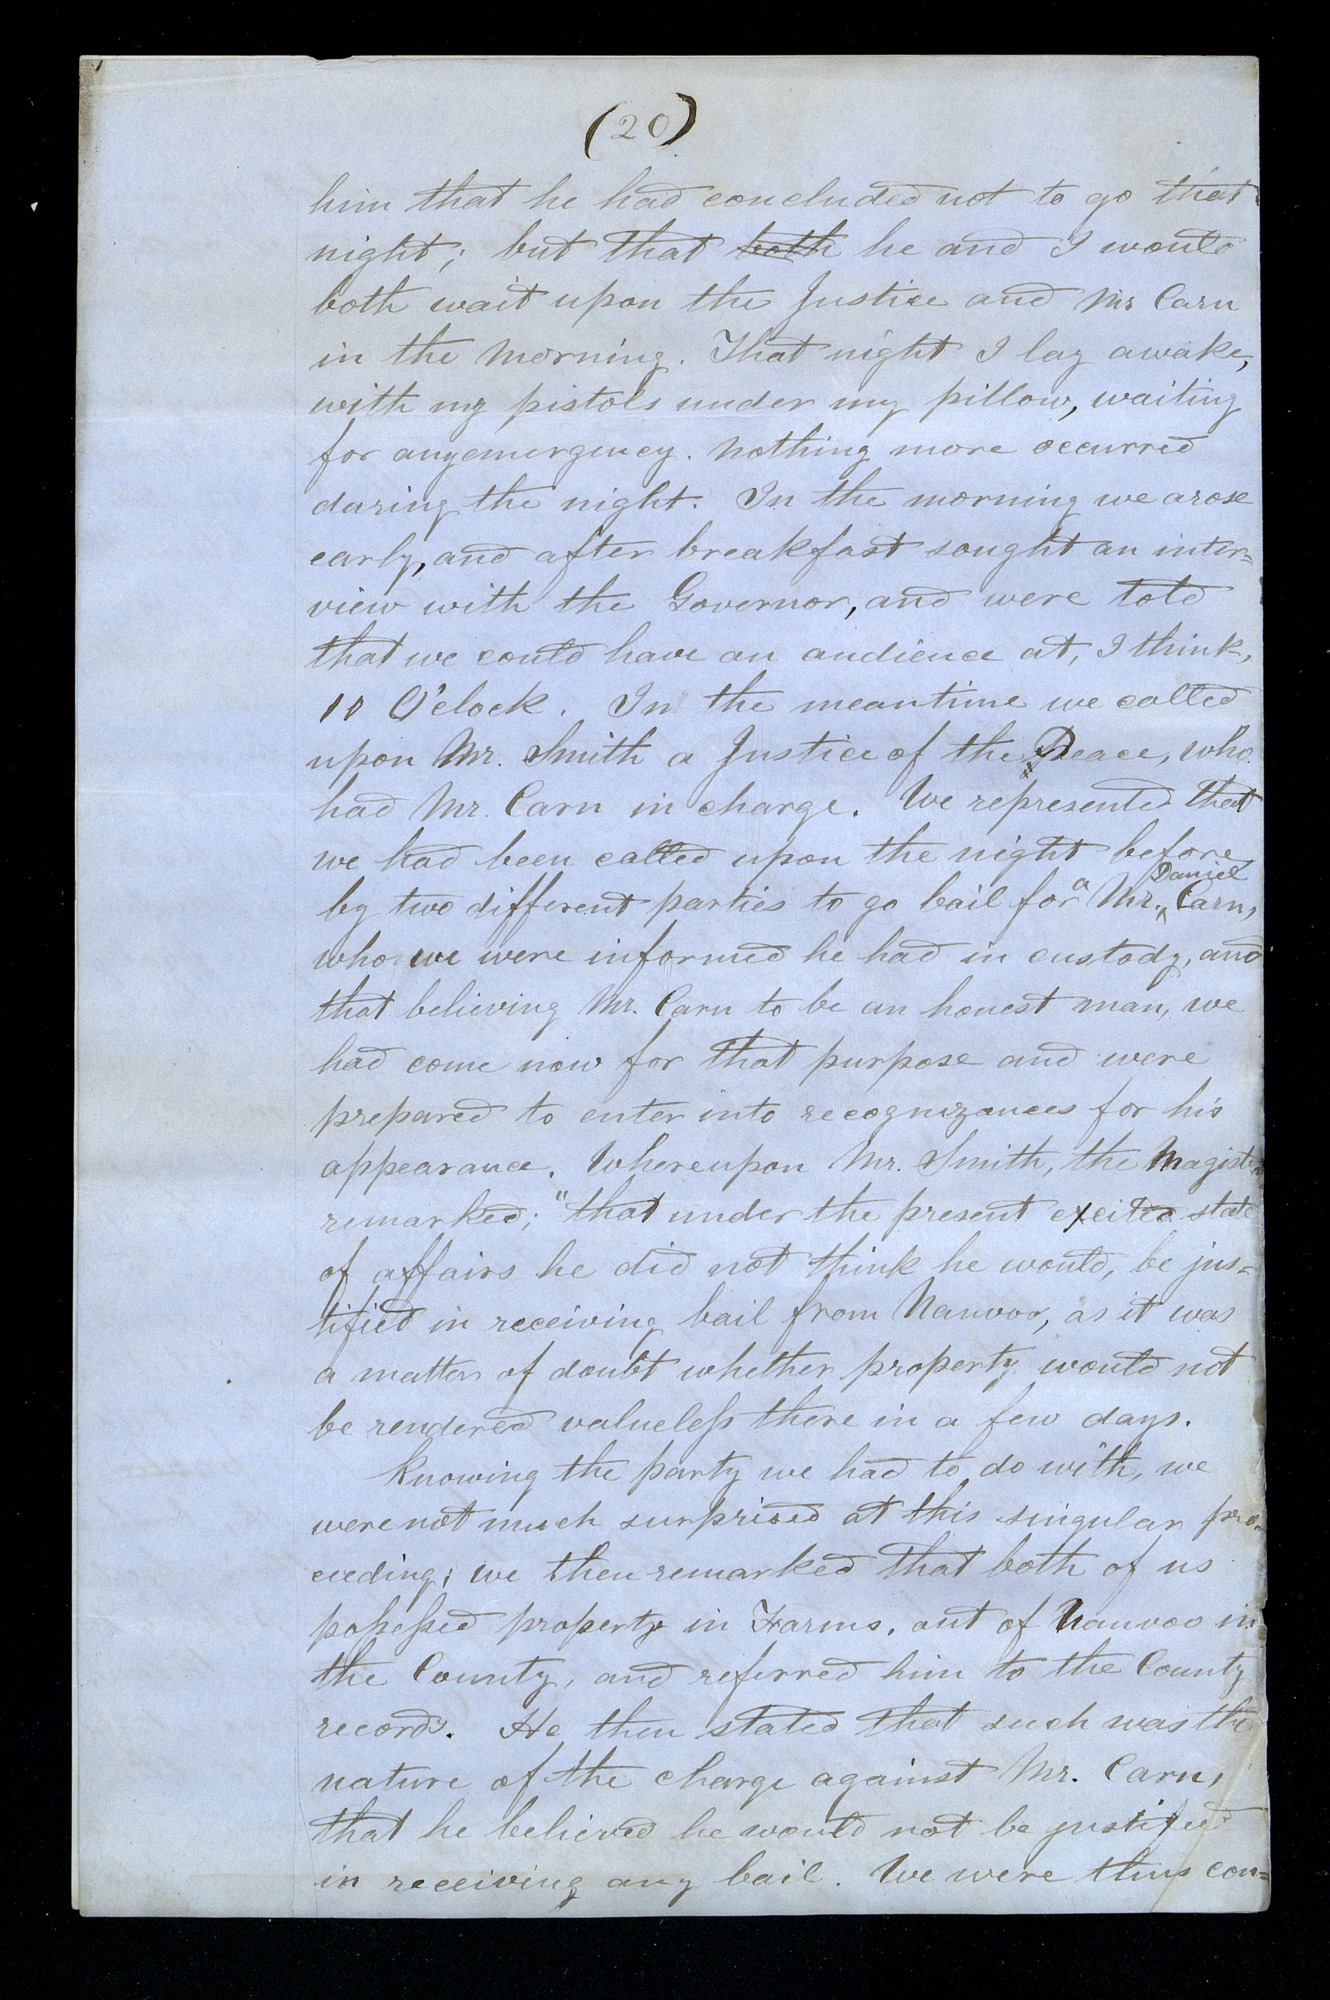 (20)
him that he had concluded not to go that
night; but that both he and I would
both wait upon the Justice and Mr Carn
in the morning. That night I lay awake,
with my pistols under my pillow, waiting
for any emergency. Nothing more occurred
during the night. In the morning we arose
early, and after breakfast sought an inter=
view with the Governor, and were told
that we could have an audience at, I think,
10 O'clock. In the meantime we called
upon Mr. Smith a Justice of the Peace, who
had Mr. Carn in charge. We represented that
we had been called upon the night before
by two different parties to go bail for a Mr. Daniel Carn,
who we were informed he had in custody, and
that believing Mr. Carn to be an honest man, we
had come now for that purpose and were
prepared to enter into recognizances for his
appearance. Whereupon Mr. Smith, the Magist
remarked; "that under the present exeited state
of affairs he did not think he would, be jus=
tified in receiving bail from Nauvoo, as it was
a matter of doubt whether property would not
be rendered valueless there in a few days.
Knowing the party we had to do with, we
were not much surprised at this singular pro-
ceeding; we then remarked that both of us
possessed property in Farms, out of Nauvoo in
the County, and referred him to the County
records. He then stated that such was the
nature of the charge against Mr. Carn,
that he believed he would not be justified
in receiving any bail. We were thus con=